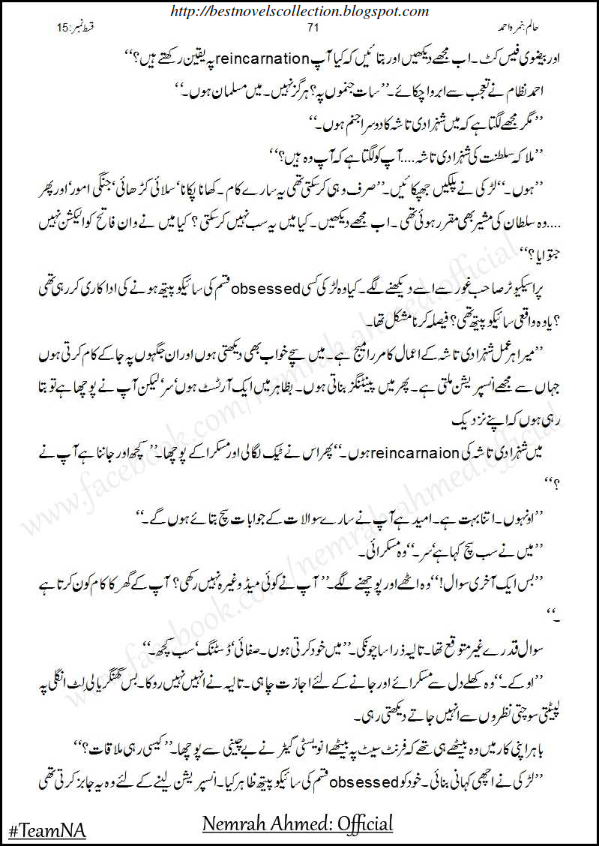 http://bestnovelscollection.blogspot.com/
حالم: نمرہ احمد
71
قسط نمبر: 15
اور بیضوی فیس کٹ۔ اب مجھے دیکھیں اور بتائیں کہ کیا آپ reincarnation پہ یقین رکھتے ہیں؟‘‘
احمد نظام نے تعجب سے ابرو اچکائے۔ ’’سات جنموں پہ؟ ہرگز نہیں۔ میں مسلمان ہوں۔‘‘
’’مگر مجھے لگتا ہے کہ میں شہزادی تاشہ کا دوسرا جنم ہوں۔‘‘
’’ملاکہ سلطنت کی شہزادی تاشہ .... آپ کو لگتا ہے کہ آپ وہ ہیں؟‘‘
’’ہوں۔‘‘ لڑکی نے پلکیں جھپکائیں۔ ’’صرف وہی کر سکتی تھی یہ سارے کام۔ کھانا پکانا‘ سلائی کڑھائی‘ جنگی امور‘ اور پھر
....وہ سلطان کی مشیر بھی مقرر ہوئی تھی۔ اب مجھے دیکھیں۔ کیا میں یہ سب نہیں کر سکتی؟ کیا میں نے وان فاتح کو الیکشن نہیں
جتوایا؟‘‘
پراسیکیوٹر صاحب غور سے اسے دیکھنے لگے۔ کیا وہ لڑکی کسی obsessed قسم کی سائیکو پیتھ ہونے کی اداکاری کر رہی تھی
؟ یا وہ واقعی سائیکو پیتھ تھی؟ فیصلہ کرنا مشکل تھا۔
’’میرا ہر عمل شہزادی تاشہ کے اعمال کا مرر امیج ہے۔ میں سچے خواب بھی دیکھتی ہوں اور ان جگہوں پہ جا کے کام کرتی ہوں
جہاں سے مجھے انسپریشن ملتی ہے۔ پھر میں پینٹنگز بناتی ہوں۔ بظاہر میں ایک آرٹسٹ ہوں‘ سر‘ لیکن آپ نے پوچھا ہے تو بتا
رہی ہوں کہ اپنے نزدیک
میں شہزادی تاشہ کی reincarnaion ہوں۔‘‘ پھر اس نے ٹیک لگا لی اور مسکرا کے پوچھا۔ ’’کچھ اور جاننا ہے آپ نے
؟‘‘
’’اونہوں۔ اتنا بہت ہے۔ امید ہے آپ نے سارے سوالات کے جوابات سچ بتائے ہوں گے۔‘‘
’’میں نے سب سچ کہا ہے‘ سر۔‘‘ وہ مسکرائی۔
’’بس ایک آخری سوال!‘‘ وہ اٹھے اور پوچھنے لگے۔ ’’آپ نے کوئی میڈ وغیرہ نہیں رکھی؟ آپ کے گھر کا کام کون کرتا ہے
۔‘‘
سوال قدرے غیر متوقع تھا۔ تالیہ ذرا سا چونکی۔ ’’میں خود کرتی ہوں۔ صفائی‘ ڈسٹنگ‘ سب کچھ۔‘‘
’’اوکے۔‘‘ وہ کھلے دل سے مسکرائے اور جانے کے لئے اجازت چاہی۔ تالیہ نے انہیں نہیں روکا۔ بس گھنگریالی لٹ انگلی پہ
لپیٹتی سوچتی نظروں سے انہیں جاتے دیکھتی رہی۔
باہر اپنی کار میں وہ بیٹھے ہی تھے کہ فرنٹ سیٹ پہ بیٹھے انویسٹی گیٹر نے بے چینی سے پوچھا۔ ’’کیسی رہی ملاقات؟‘‘
’’لڑکی نے اچھی کہانی بنائی۔ خود کو obsessed قسم کی سائیکو پیتھ ظاہر کیا۔ انسپریشن لینے کے لئے وہ یہ جابز کرتی تھی
www.facebook.com/nemrah.ahmed.official
#TeamNA
Nemrah Ahmed: Official